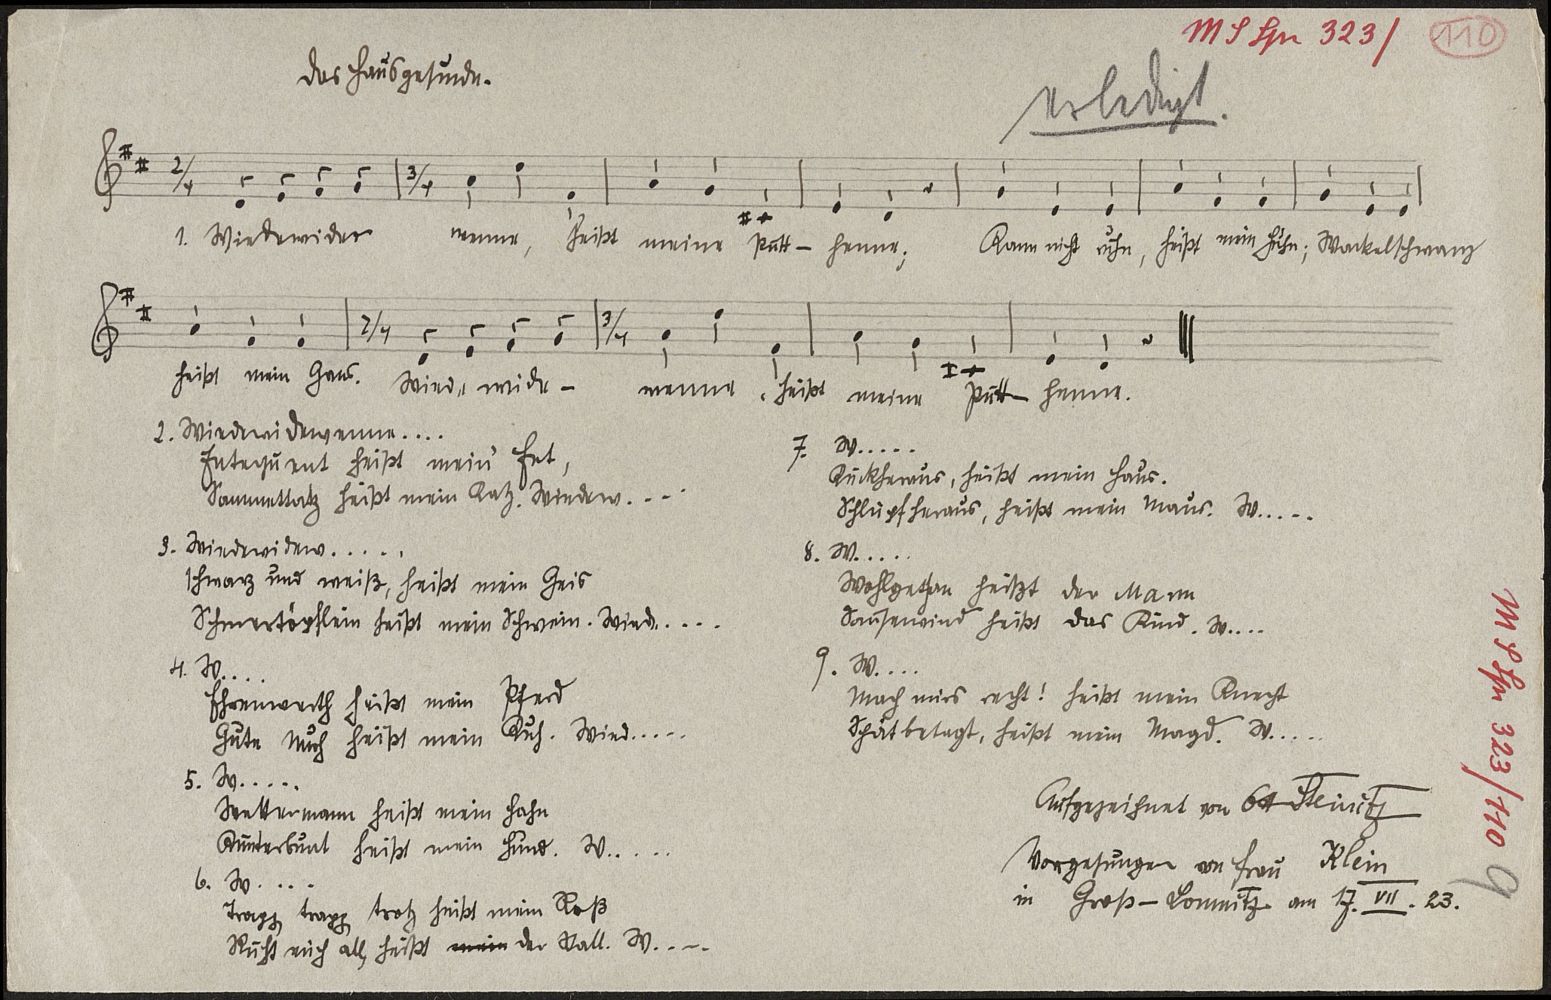 MS Spr 323/ 110
Das Hausgesinde.
erledigt.
2/4 3/4
1. Wiedewider wenne, heißt meine Putt- henne; Kann nicht ruhn, heißt mein Huhn; Wackelschwanz
2/4 3/4
heißt mein Gans. Wiede wide- wenne, heißt meine Putt- henne.
2. Wiedewidewenne....
Entequent heißt mein Ent,
Sammettatz heißt mein Katz. Wiedew. ---
3. Wiedewidew.....
Schwarz und weiß, heißt mein Geis
Schmertöpflein heißt mein Schwein. Wied.....
4. W....
Ehrenwerth heißt mein Pferd
Gute Muh heißt mein Kuh. Wied.....
5. W.....
Wettermann heißt mein Hahn
Kunterbunt heißt mein Hund. W.....
6. W....
Trapp, trapp, trotz heißt mein Roß
heißt der Stall. W.----
7. W.....
Guckheraus, heißt mein Haus.
Schlupfheraus, heißt mein Maus. W.....
8. W.....
Wohlgethan heißt der Mann
Sausewind heißt das Kind. W....
9. W....
Mach mirs recht! heißt mein Knecht
Spät betagt, heißt mein Magd. W.....
Aufgezeichnet von Steinitz
Vorgesungen von Frau Klein
in Groß-Lomnitz am 17. VII. 23.
MS Spr 323/110